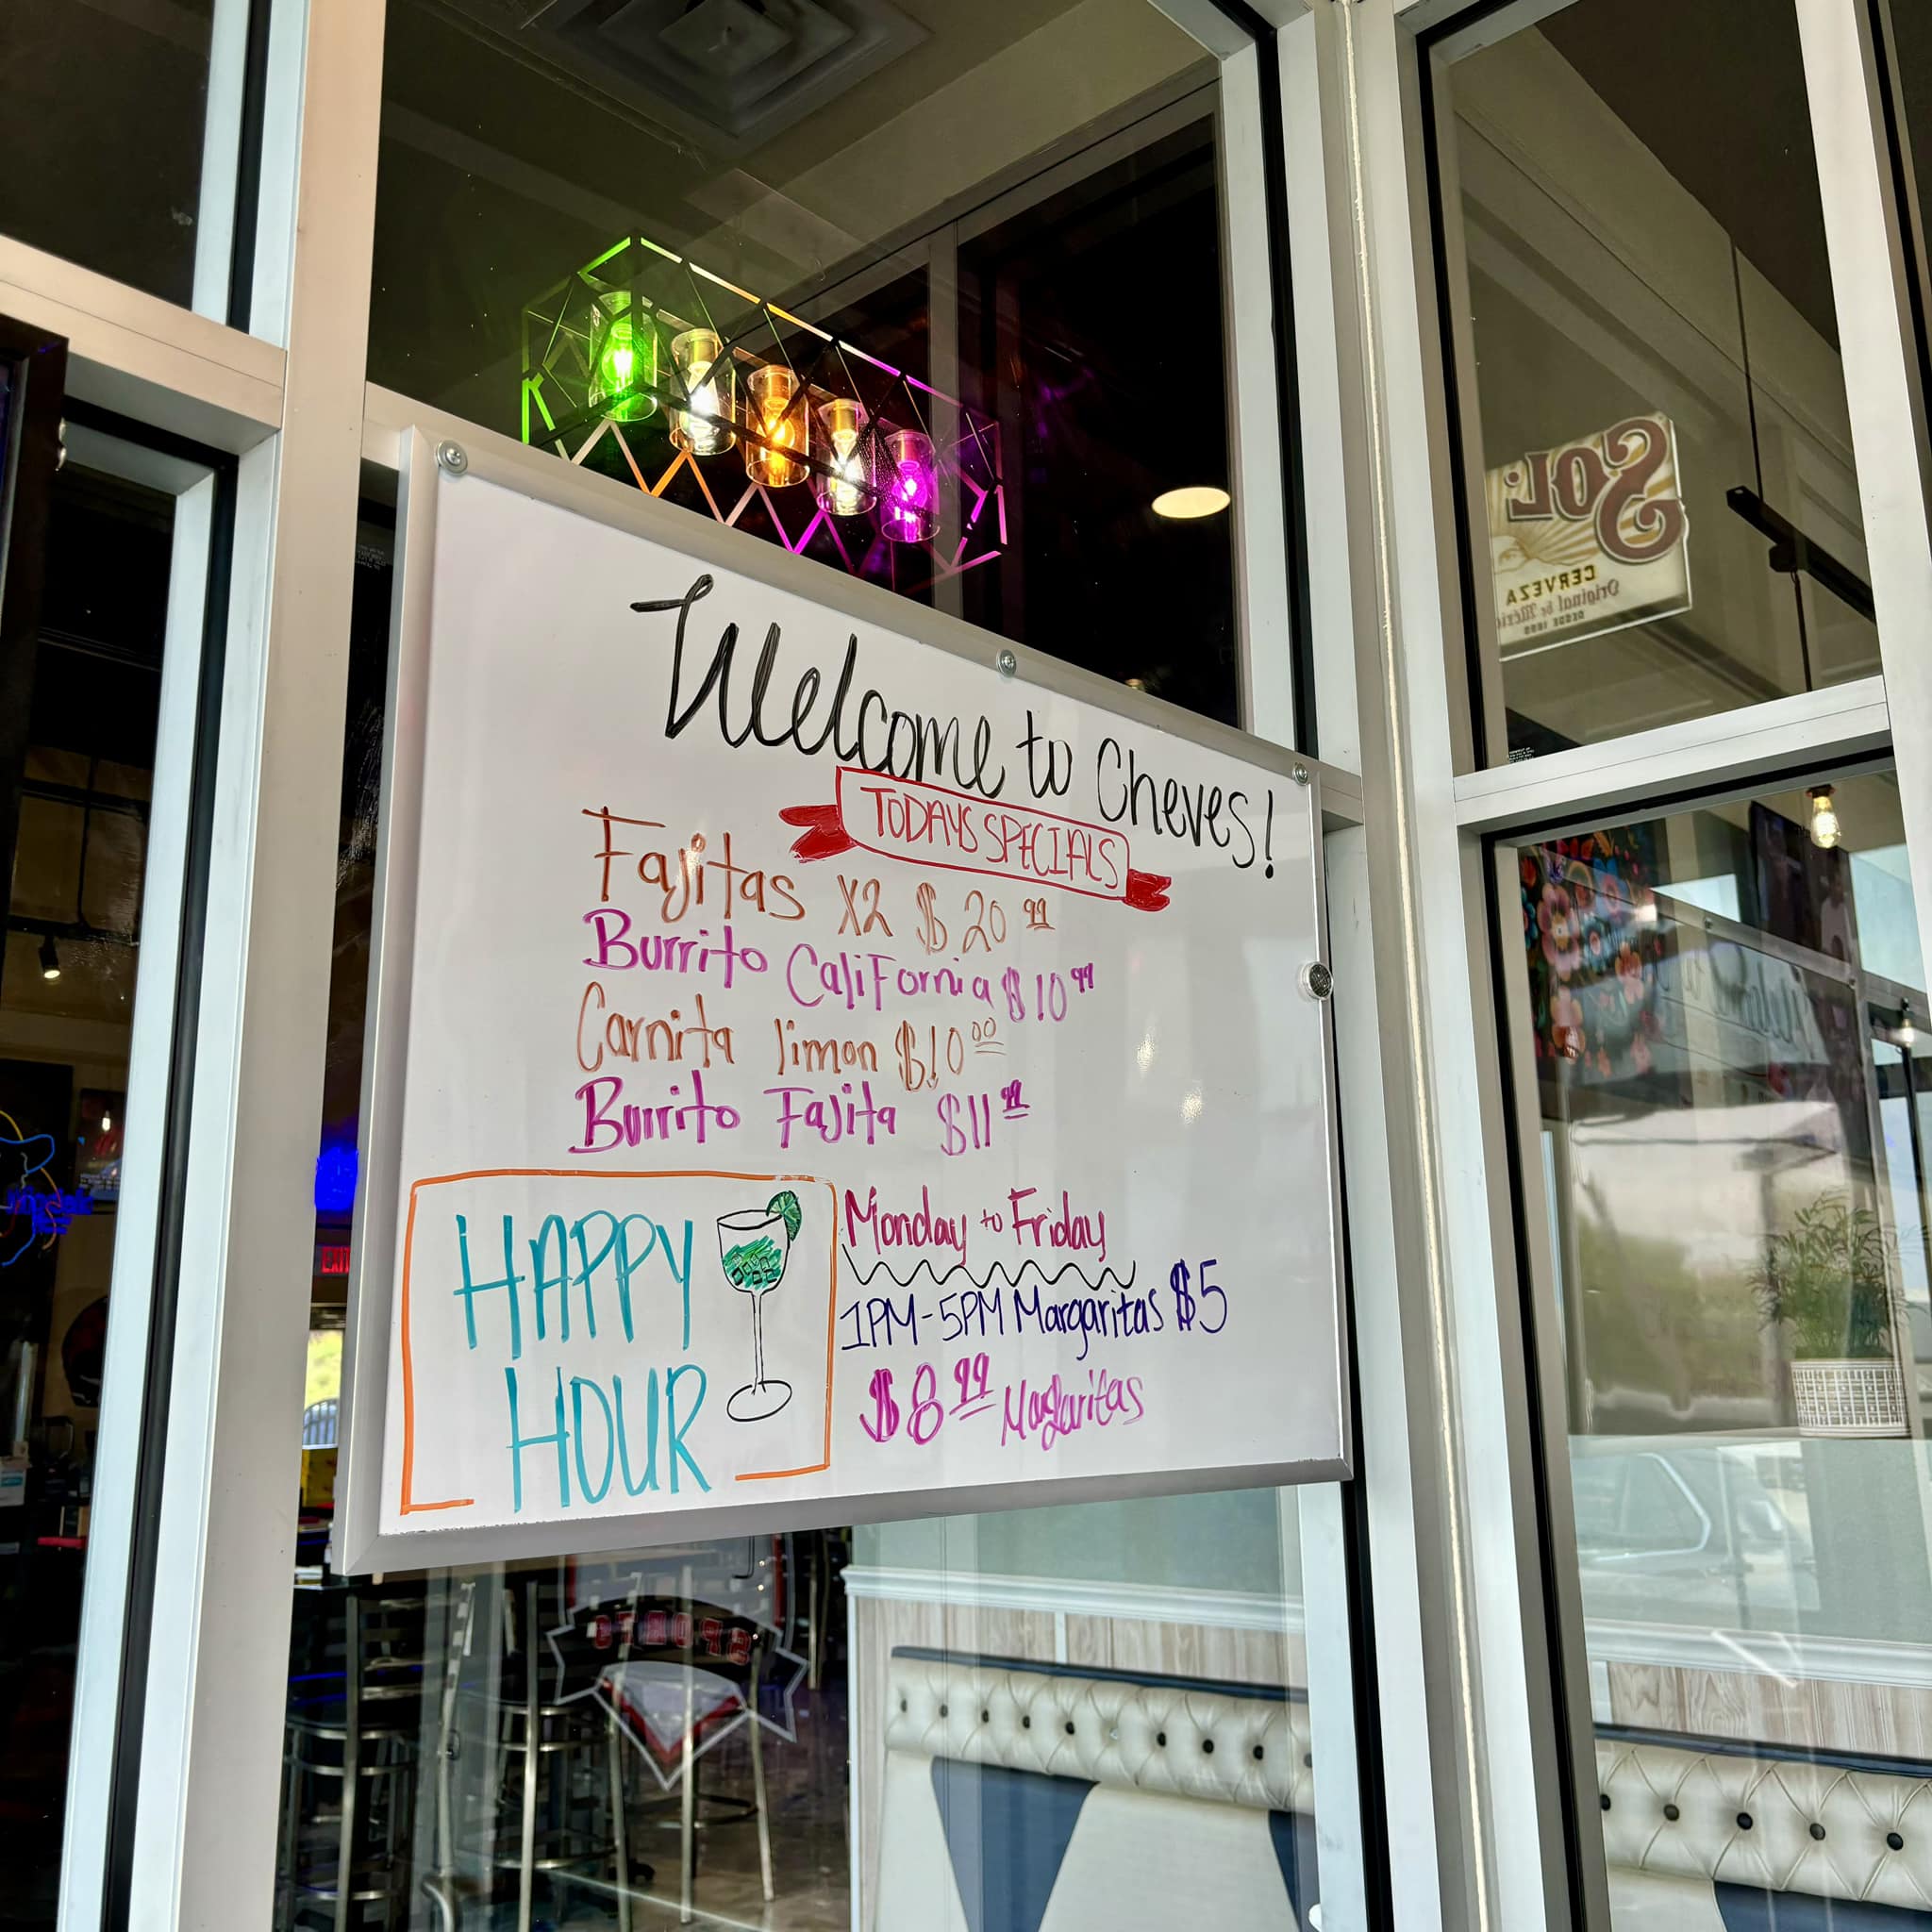 Welcome to Cheves!
TODAYS SPECIALS
Fajitas X2 $20.99
Burrito California $10.99
Carnita limon $10.00
Burrito Fajita $11.99
HAPPY
HOUR
Monday to Friday
1PM-5PM Margaritas $5
$8.99 Margaritas
SOL
CERVEZA
Original de
DESDE 1899
EXIT
SPORTS